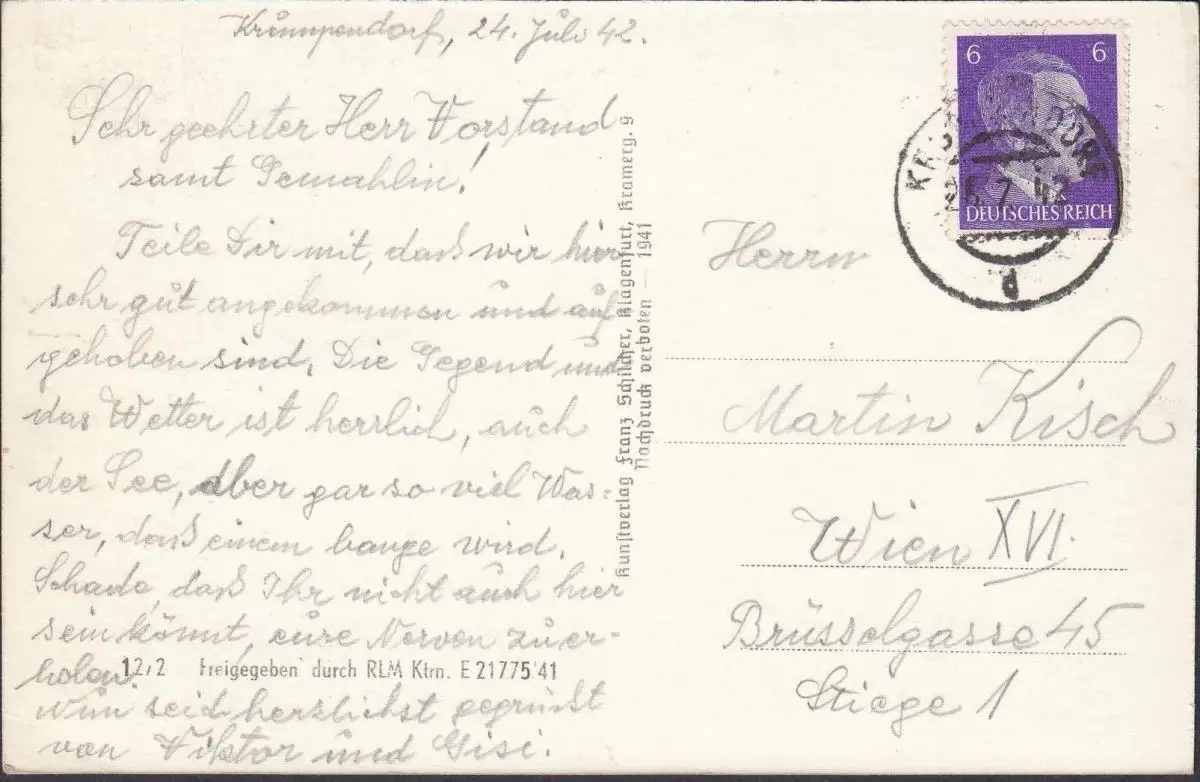 Krumpendorf, 24. Juli 42.
Sehr geehrter Herr Vorstand
samt Gemahlin!
Teile Dir mit, daß wir hier
sehr gut angekommen und auf-
gehoben sind. Die Gegend und
das Wetter ist herrlich, auch
der See, aber gar so viel Was-
ser, daß einem bange wird.
Schade, daß Ihr nicht auch hier
sein könnt, eure Nerven zu er-
holen.
Nun seid herzlichst gegrüßt
von Viktor und Gisi.
12/2 Freigegeben durch RLM Ktrn. E 21775/41
Kunstverlag Franz Schilcher, Klagenfurt, Kramerg. 9
Nachdruck verboten — 1941
6 6
DEUTSCHES REICH
26.7.42
d
Herrn
Martin Kisch
Wien XVI.
Brüsselgasse 45
Stiege 1